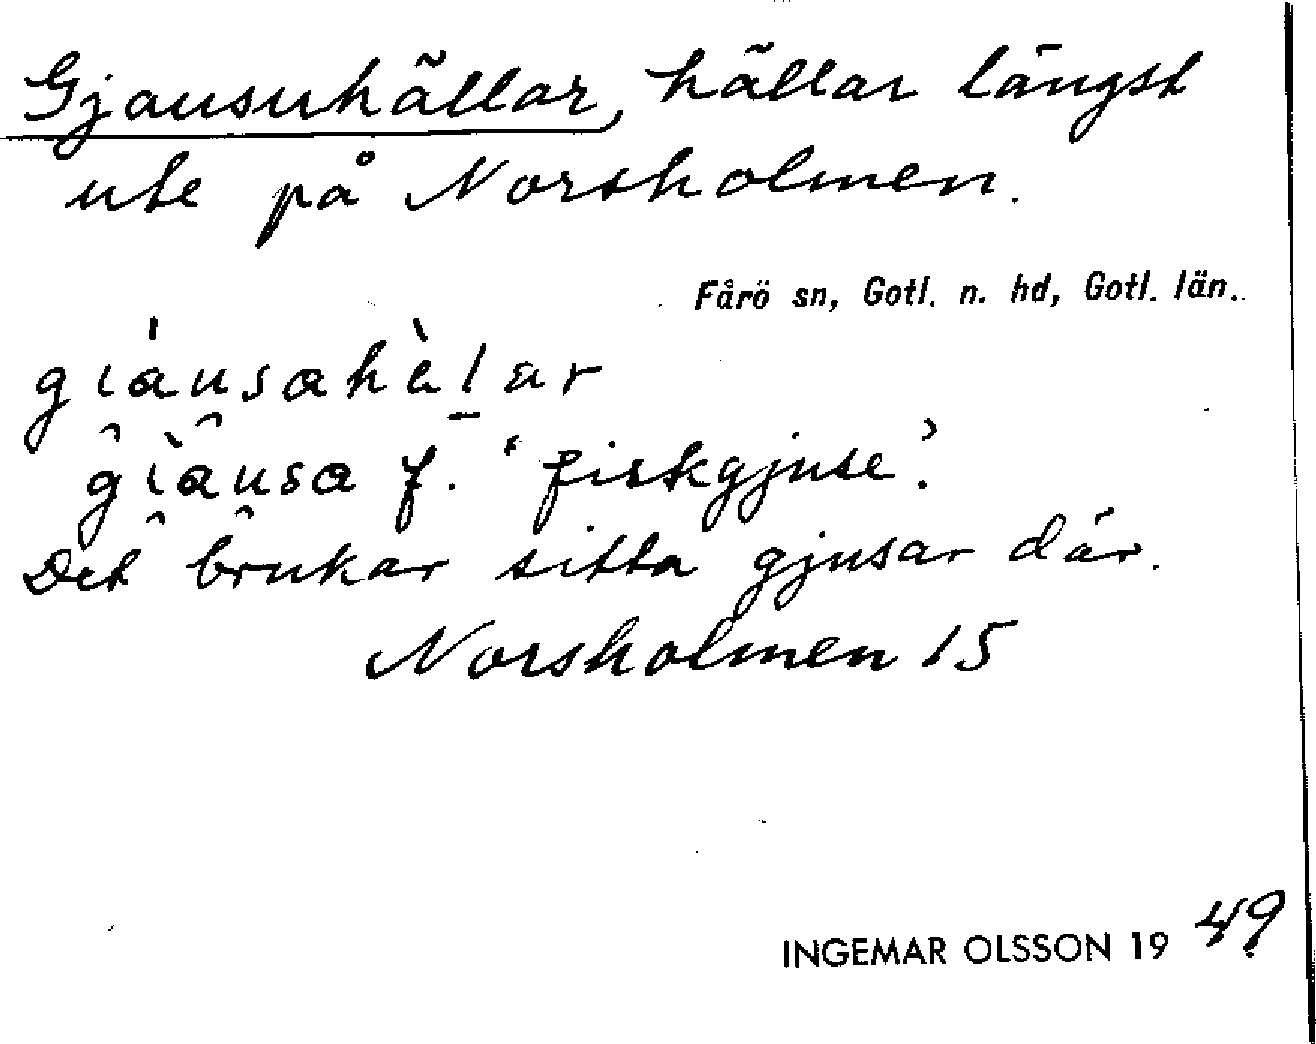 Gjausuhällar, hällar längst
ute på Norsholmen.
Fårö sn, Gotl. n. hd, Gotl. län.
gi̯áu̯sahèḷar
gi̯àu̯sa f. 'fiskgjuse'.
Det brukar sitta gjusar där.
Norsholmen 15
INGEMAR OLSSON 19 49